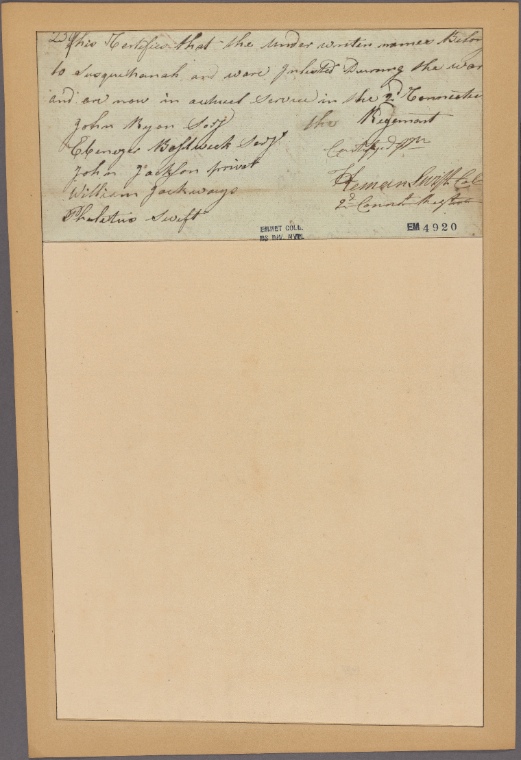 This Certifies that the under writen names Belon
to Susquehanah and ware Inlested Durong the war
and are now in actuel Service in the 2d Connectic
John Ryan Serjt the Regement
Ebenezer Bostweck Serjt
John Jackson privet
William Jackways Heman Swift Col
Philetus Swift 2d Connt Regt
EMMET COLL. EM 4920